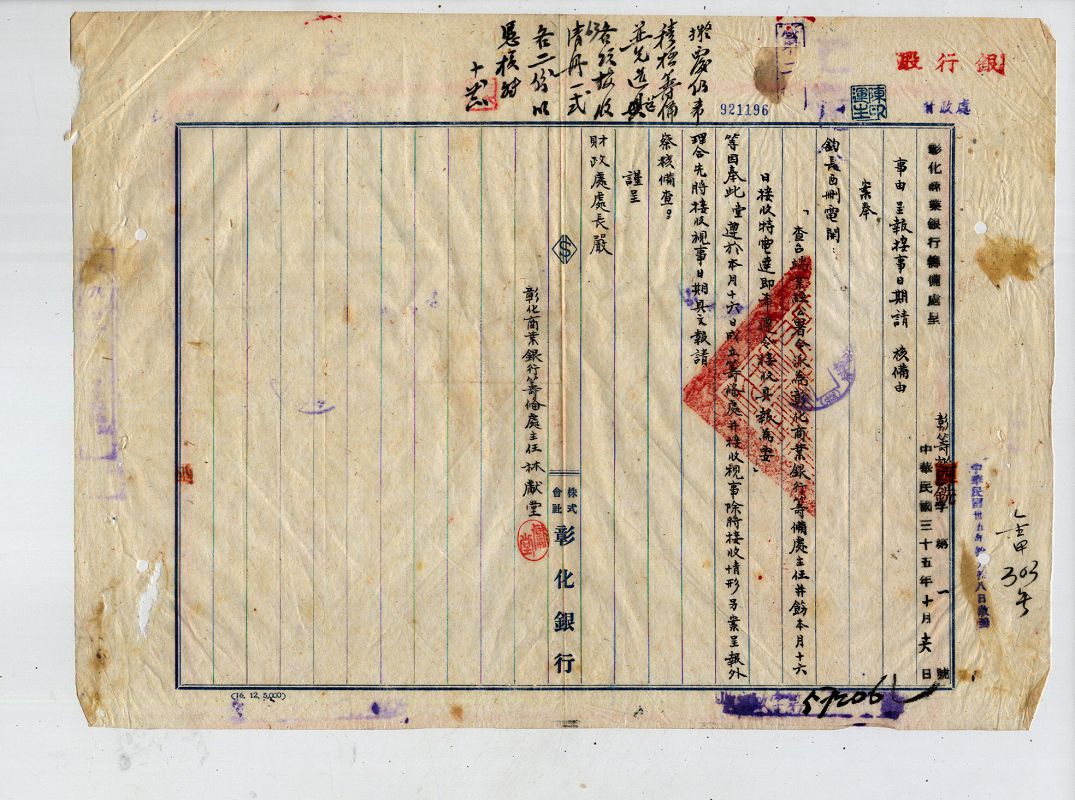 銀行股
財政處
陳運生印
921196
彰化商業銀行籌備處呈
彰籌 字第一號
中華民國三十五年十月 日
事由 呈報接事日期請 核備由
案奉
鈞長酉刪電開：
「查台端業經公署令派為彰化商業銀行籌備處主任并飭本月十六
日接收特電達即希遵令接收具報為要」
等因奉此 遵於本月十六日成立籌備處并接收視事除將接收情形另案呈報外
理合先將接收視事日期具文報請
察核備查。
謹呈
財政處處長嚴
彰化商業銀行籌備處主任林獻堂
株式會社 彰化銀行
擬處仍希
積極籌備
並先造具
各項接收
清冊一式
各二份以
憑核對
303號
57206
(16. 12. 5,000)